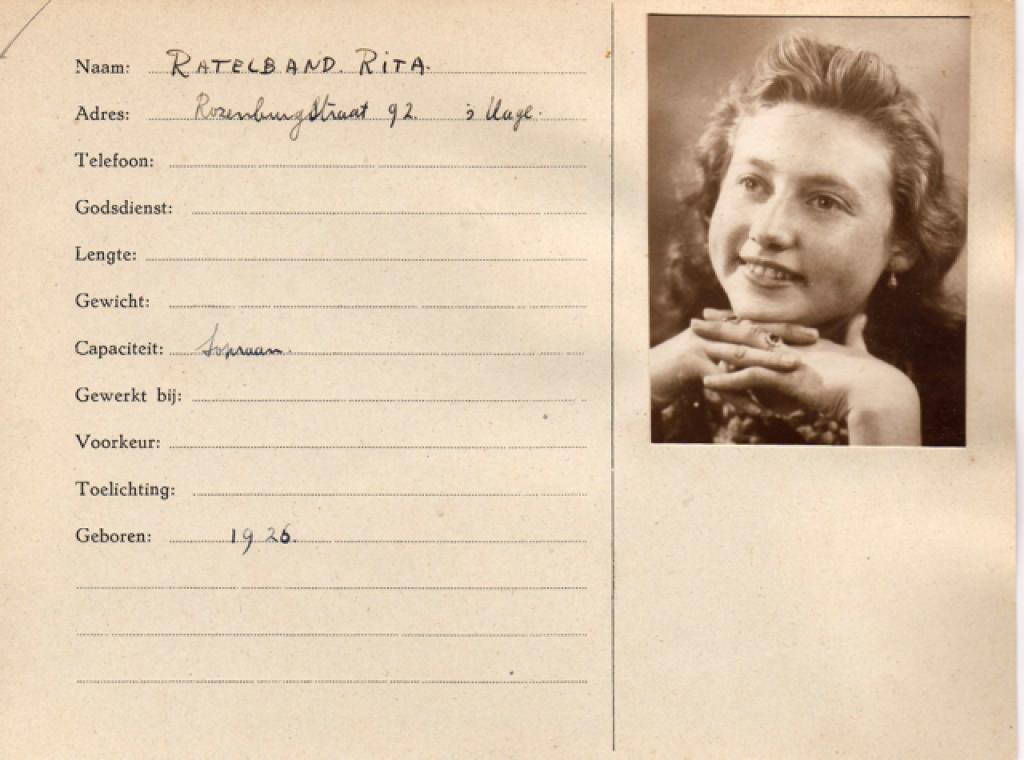 Naam: RATELBAND. RITA.
Adres: Rozenburgstraat 92. 's Hage.
Telefoon:
Godsdienst:
Lengte:
Gewicht:
Capaciteit: Sopraan.
Gewerkt bij:
Voorkeur:
Toelichting:
Geboren: 1926.